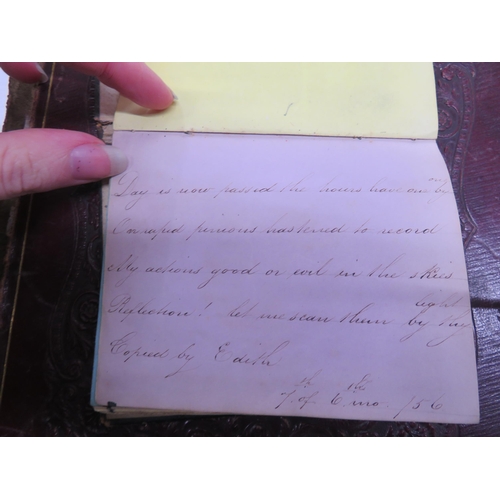 Day is now passed the hours had one by on
On rapid pinions hastened to record
My actions good or evil in the skies
Reflection! let me scan them by thy light
Copied by Edith
7th of 6th mo. /56